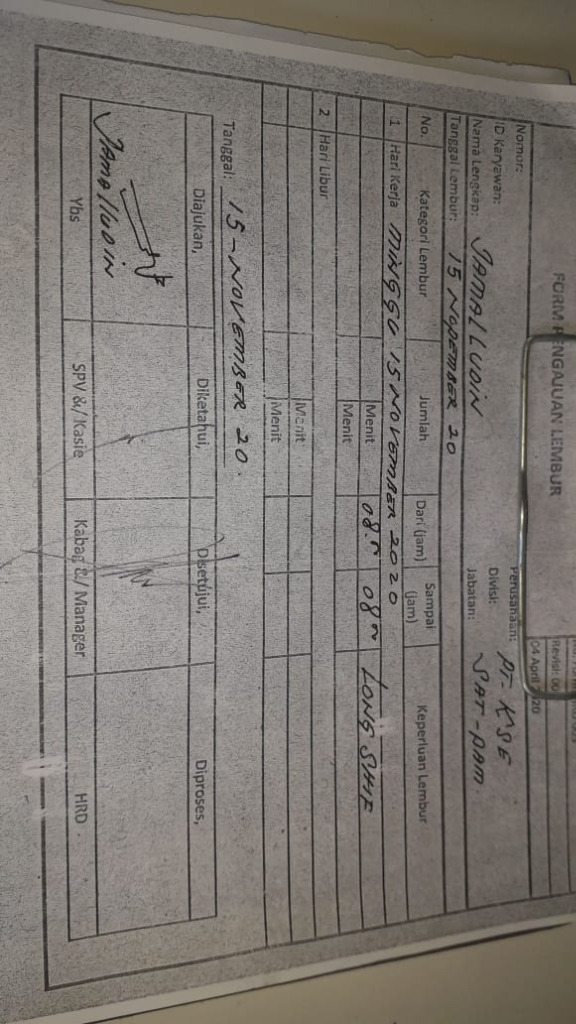 FORM PENGAJUAN LEMBUR
Revisi: 00
04 April 2020
Nomor:
ID Karyawan:
Nama Lengkap: JAMALLUDIN
Tanggal Lembur: 15 NOPEMBER 20
Perusahaan: PT- KSE
Divisi: SAT-PAM
Jabatan:
No. Kategori Lembur Jumlah Dari (jam) Sampai (jam) Keperluan Lembur
1 Hari Kerja MINGGU 15 NOVEMBER 2020
Menit 08.00 08 00 LONG SHIF
Menit
2 Hari Libur
Menit
Menit
Tanggal: 15-NOVEMBER 20.
Diajukan, Diketahui, Disetujui, Diproses,
JAMALLUDIN
Ybs SPV &/ Kasie Kabag &/ Manager HRD